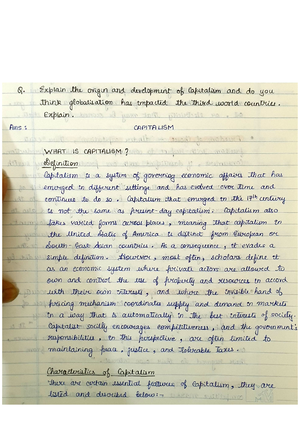 Q. Explain the origin and development of Capitalism and do you
think globalisation has impacted the third world countries.
Explain.
Ans: CAPITALISM
WHAT IS CAPITALISM?
Definition
Capitalism is a system of governing economic affairs that has
emerged in different settings and has evolved over time and
continues to do so. Capitalism that emerged in the 17th century
is not the same as present-day capitalism. Capitalism also
takes varied forms across places, meaning that capitalism in
the United States of America is distinct from European or
South-East Asian countries. As a consequence, it evades a
simple definition. However, most often, scholars define it
as an economic system where private actors are allowed to
own and control the use of property and resources in accord
with their own interest, and where the invisible hand of
pricing mechanism coordinates supply and demand in markets
in a way that is automatically in the best interests of society.
Capitalist society encourages competitiveness, and the government's
responsibilities, in this perspective, are often limited to
maintaining peace, justice, and tolerable taxes.
Characteristics of Capitalism
There are certain essential features of Capitalism, they are
listed and described below:-